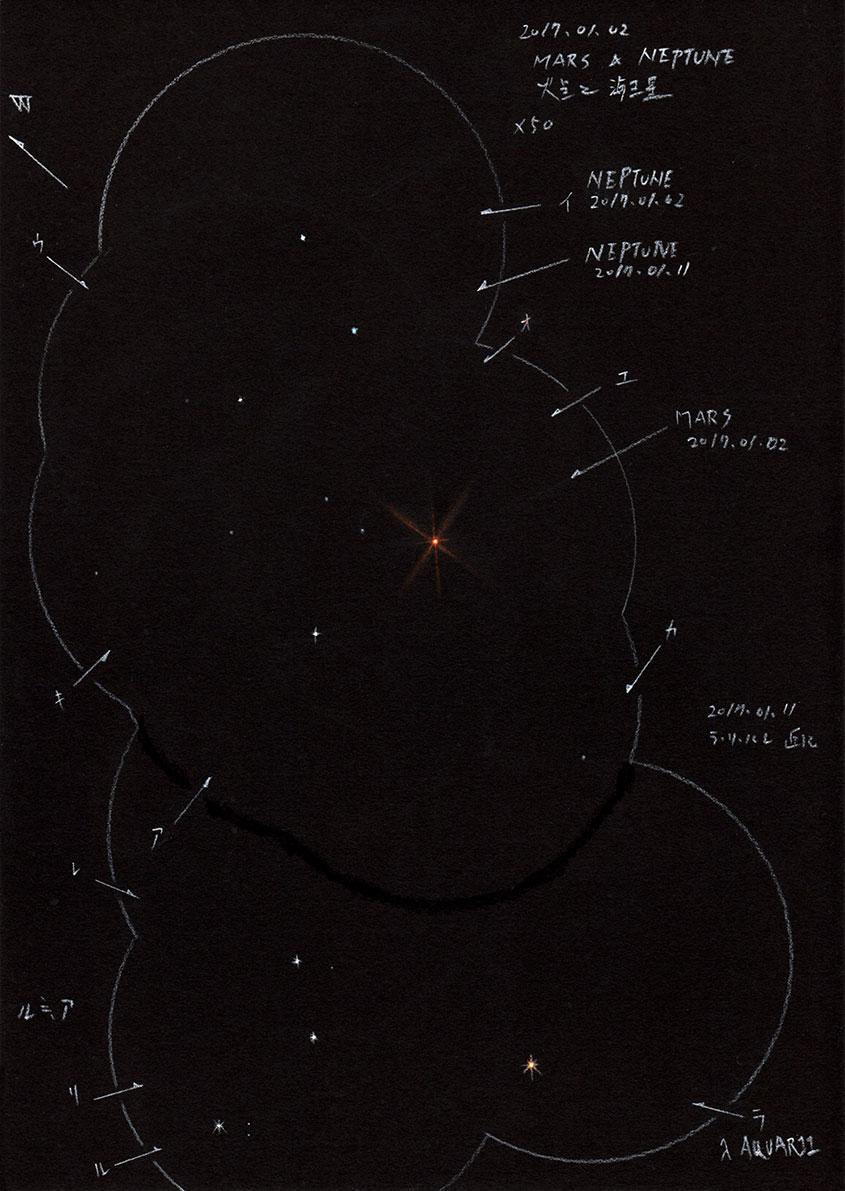 2017.01.02
MARS & NEPTUNE
火星と海王星
×50
W
イ
NEPTUNE
2017.01.02
ウ
NEPTUNE
2017.01.11
オ
エ
MARS
2017.01.02
カ
キ
2017.01.11
ア
レ
ルミア
リ
ラ
λ AQUARII
ル